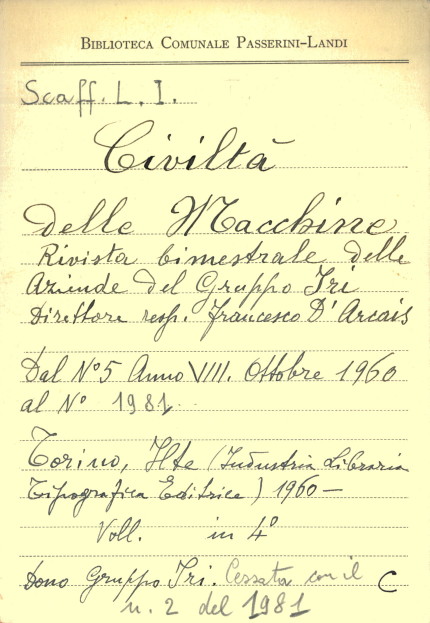 BIBLIOTECA COMUNALE PASSERINI-LANDI
Scaff. L. I.
Civiltà
delle Macchine
Rivista bimestrale delle
Aziende del Gruppo Iri
Direttore resp. Francesco D'Arcais
Dal N° 5 Anno VIII. Ottobre 1960
al N° 1981
Torino, Ilte (Industria Libraria
Tipografica Editrice) 1960—
Voll. in 4°
Dono Gruppo Iri. Cessata con il C
n. 2 del 1981